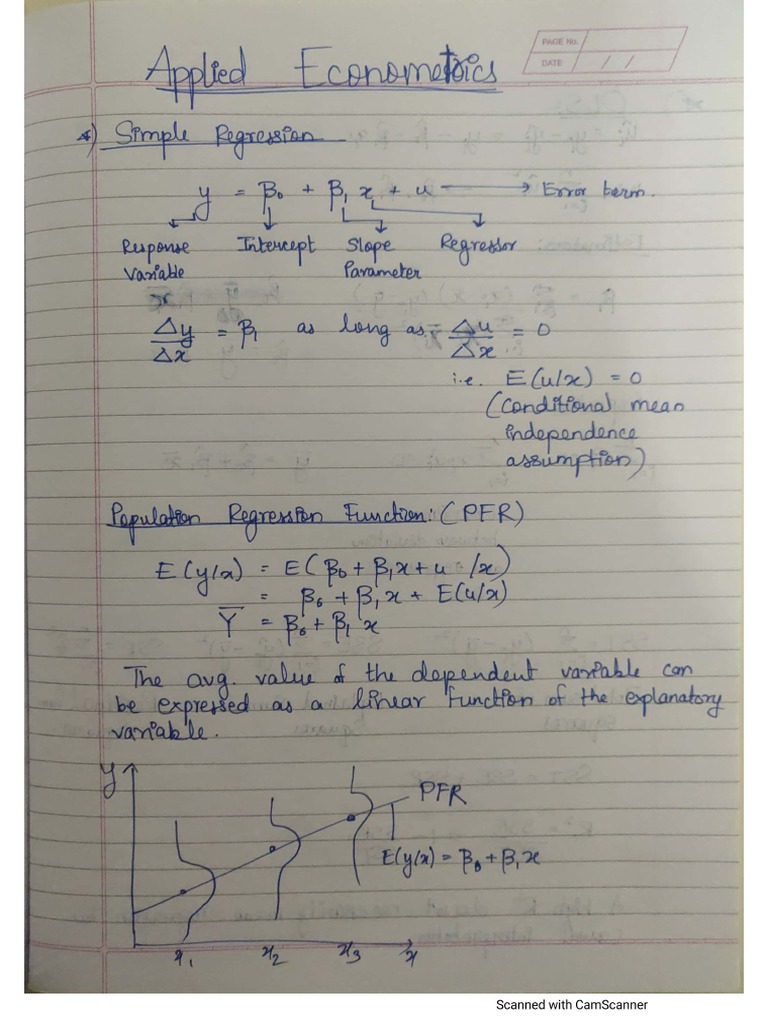 Applied Econometrics
PAGE No.
DATE / /
*) Simple Regression
y = β₀ + β₁ x + u → Error term.
Response Intercept Slope Regressor
Variable Parameter
or
Δy/Δx = β₁ as long as Δu/Δx = 0
i.e. E(u/x) = 0
(Conditional mean
independence
assumption)
Population Regression Function: (PFR)
E(y/x) = E(β₀ + β₁x + u /x)
= β₀ + β₁x + E(u/x)
Y̅ = β₀ + β₁ x
The avg. value of the dependent variable can
be expressed as a linear function of the explanatory
variable.
y
PFR
E(y/x) = β₀ + β₁x
x₁ x₂ x₃ x
Scanned with CamScanner